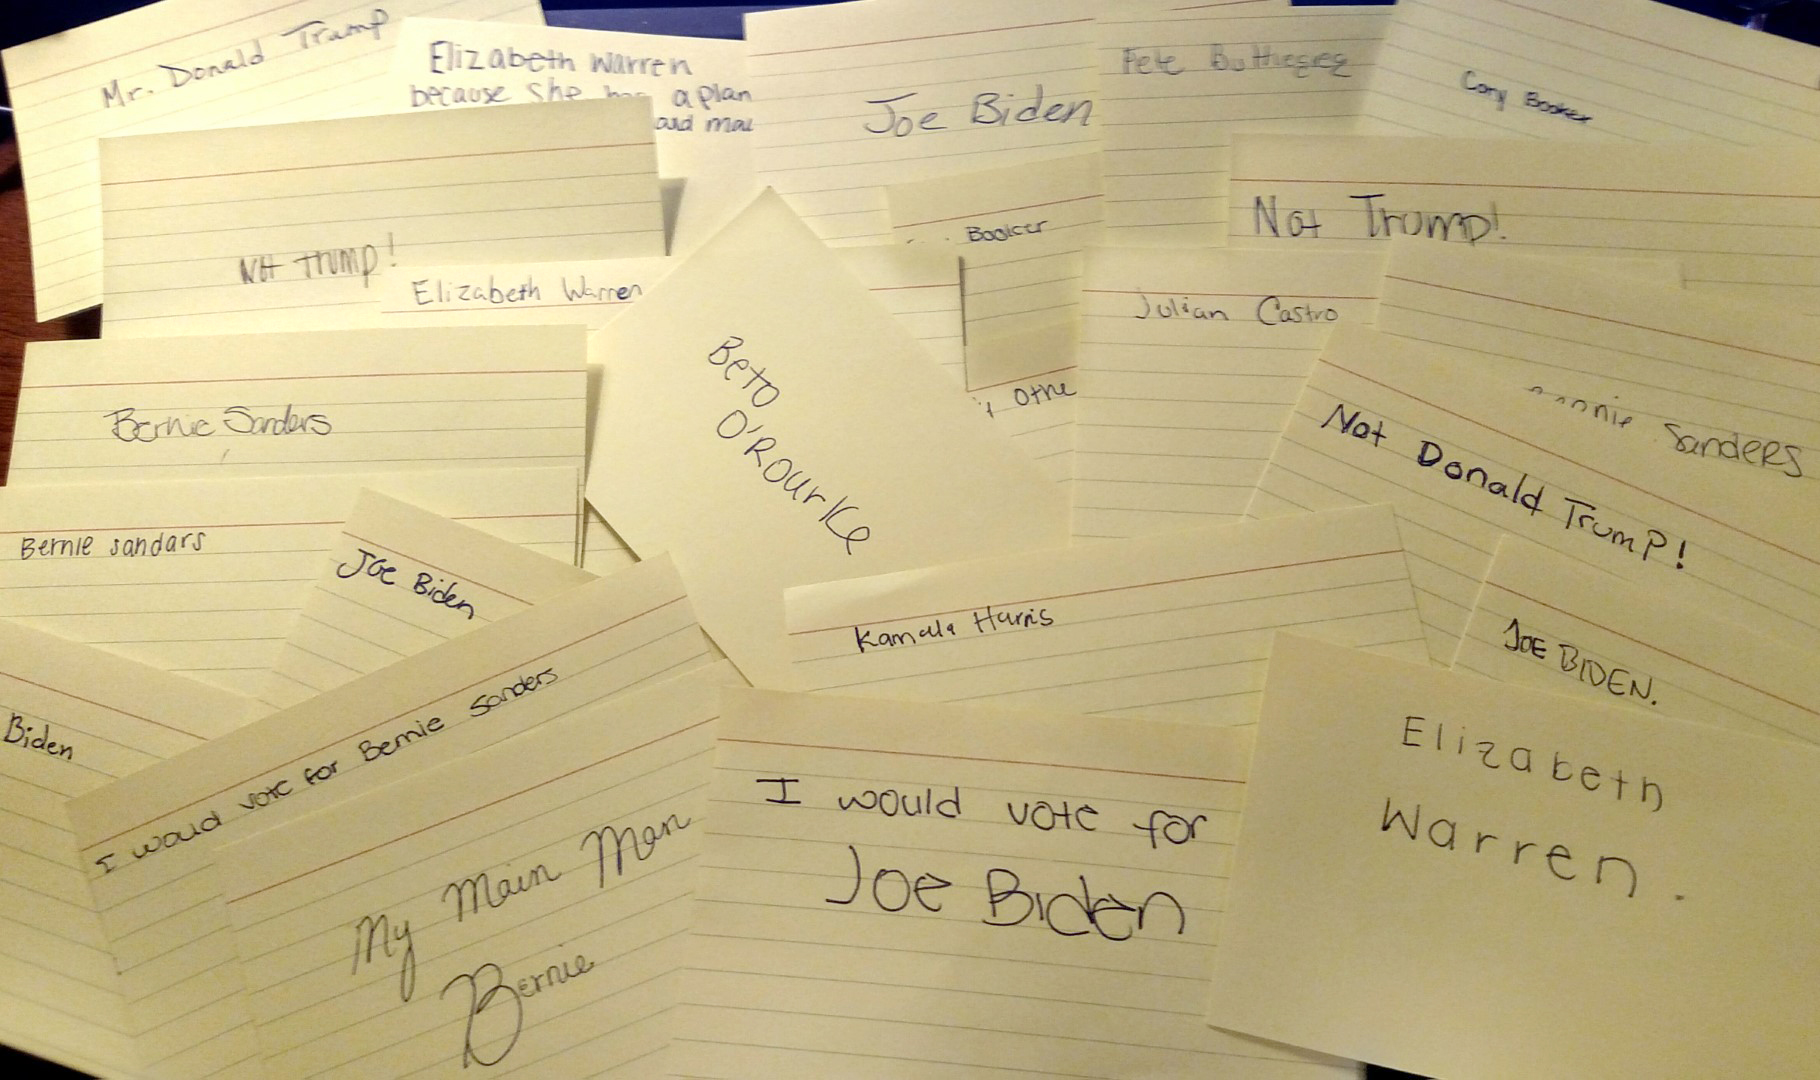 Mr. Donald Trump
Elizabeth Warren
because She has a plan
and mai
Joe Biden
Pete Buttiegieg
Cory Booker
NOt TRUMP!
Elizabeth Warren
Booker
Not Trump!
Julian Castro
Beto
O'Rourke
Othe
Sanders
Not Donald Trump!
Bernie Sanders
Bernie sandars
Joe Biden
Kamala Harris
JOE BIDEN.
Biden
I would vote for Bernie Sanders
My Main Man
Bernie
I would vote for
Joe Biden
Elizabeth
Warren.